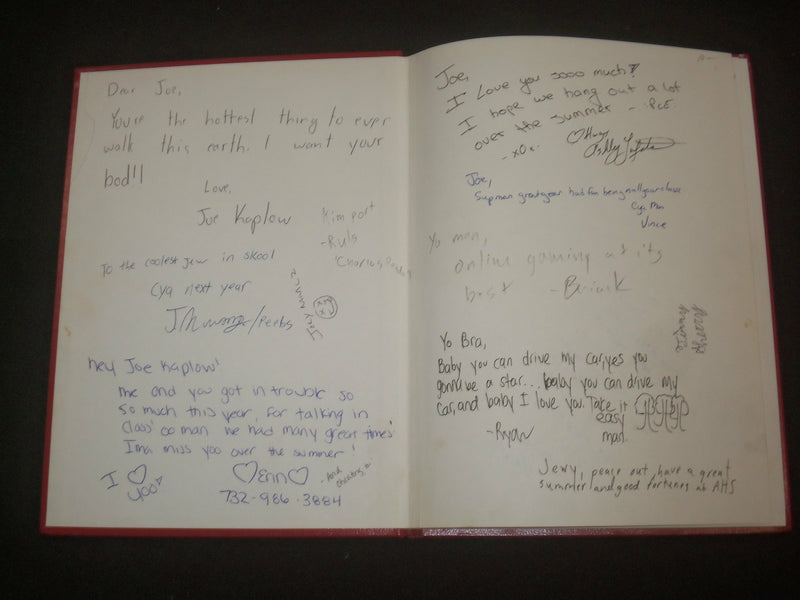 Dear Joe,
You're the hottest thing to ever
walk this earth. I want your
bod!!
Love,
Joe Kaplow
Kim port
-Ruls
To the coolest jew in skool
Cya next year
/Peebs
Hey Joe Kaplow!
me and you got in trouble so
so much this year, for talking in
class! oo man we had many great times!
Ima miss yoo over the summer!
I ♡
yoo!
♡Erin♡
-And
732-986-3884
Joe,
I Love you sooo much!
I hope we hang out a lot
over the summer
-xOx.
♡Always
Joe,
Sup man great year had fun being in all your class
Cya Man
Vince
Yo man,
online gaming at its
best
Yo Bra,
Baby you can drive my car, yes you
gonna be a star... baby you can drive my
car, and baby I love you. Take it
easy
man.
-Ryan
Jewy, peace out, have a great
summer and good fortunes at AHS